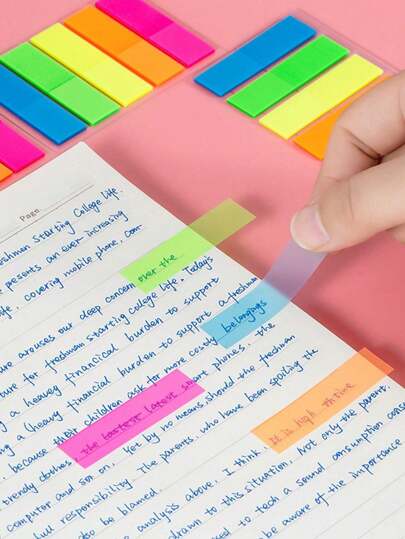 Page
freshman starting College life.
presents an ever-increasing
life, covering mobile phone, com
are arouses our deep concern over the
ture for freshman starting college life. Today's
g a (heavy financial burden to support
ng a (heavy financial burden to support a freshman belongings
, because their children ask for more costly
trendy clothes, the lastest latest smart phones, the
computer and so on. Yet by no means, should the freshman
full responsibility. The parents, who have been spoiling the
also be blamed. It is high thrive
analysis above, I think,
drawn to this situation. Not only the parent,
to tech a sound consumption
be aware of the importance